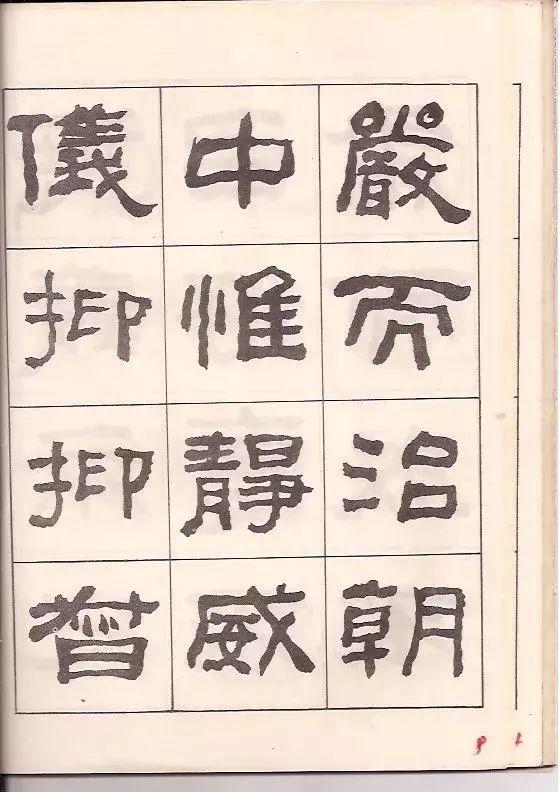 嚴而治朝
中惟靜威
儀抑抑督